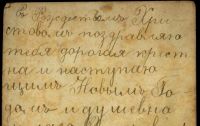 съ Рождествомъ Хри
стовымъ поздравляю
тебя дорогая крест
на и наступаю
щимъ Новымъ Го
домъ и душевна